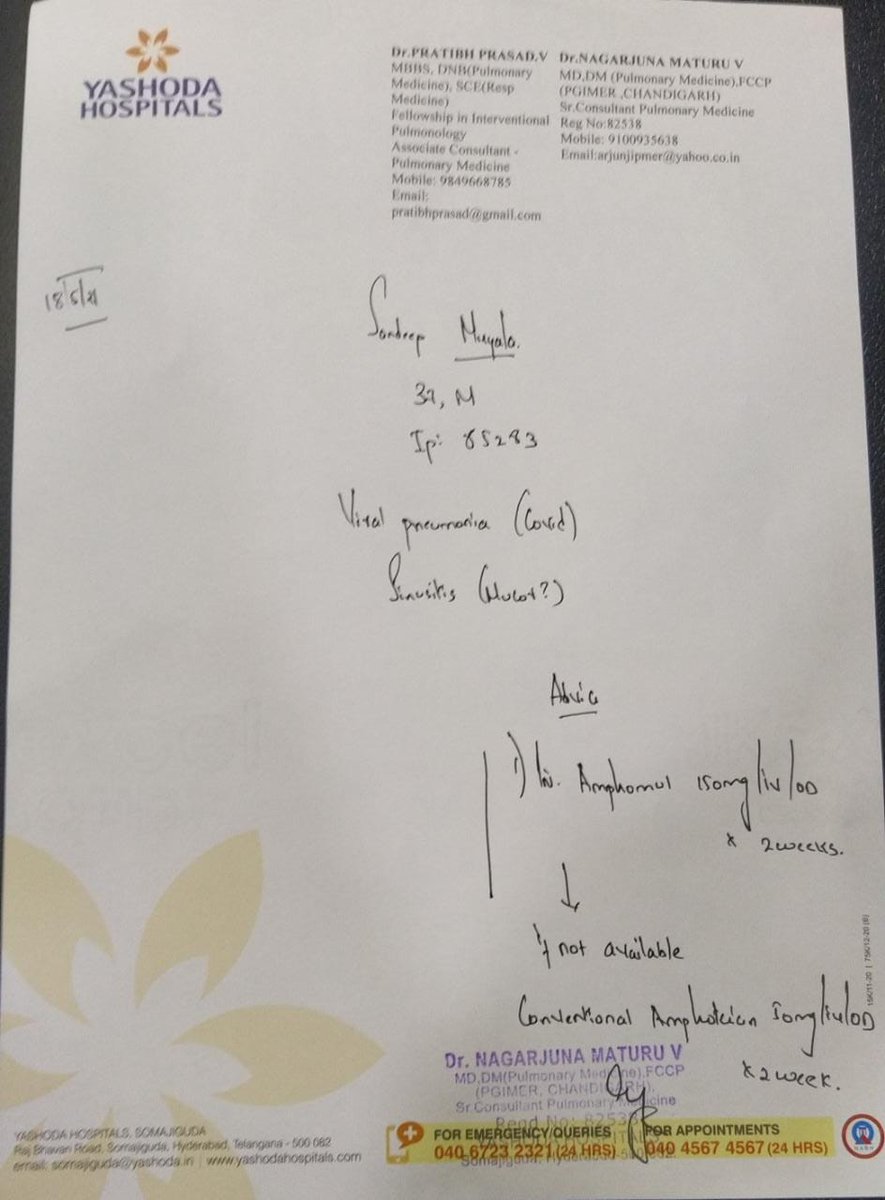 YASHODA
HOSPITALS
Dr.PRATIBH PRASAD.V
MBBS, DNB(Pulmonary
Medicine), SCE(Resp
Medicine)
Fellowship in Interventional
Pulmonology
Associate Consultant -
Pulmonary Medicine
Mobile: 9849668785
Email:
pratibhprasad@gmail.com
Dr.NAGARJUNA MATURU V
MD,DM (Pulmonary Medicine),FCCP
(PGIMER ,CHANDIGARH)
Sr.Consultant Pulmonary Medicine
Reg No:82538
Mobile: 9100935638
Email:arjunjipmer@yahoo.co.in
18/5/21
Sandeep Muyala.
37, M
Ip: 85283
Viral pneumonia (Covid)
Sinusitis (Mucor?)
Advice
1) Inj. Amphomul 150mg/iv/OD
x 2 weeks.
↓
if not available
Conventional Amphotericin 50mg/iv/OD
x 2 week.
Dr. NAGARJUNA MATURU V
MD,DM(Pulmonary Medicine).FCCP
(PGIMER, CHANDIGARH).
Sr.Consultant Pulmonary Medicine
Regd No: 82538
YASHODA HOSPITALS, SOMAJIGUDA
Raj Bhavan Road, Somajiguda, Hyderabad, Telangana - 500 082
email: somajiguda@yashoda.in | www.yashodahospitals.com
FOR EMERGENCY/QUERIES
040 6723 2321 (24 HRS)
FOR APPOINTMENTS
040 4567 4567 (24 HRS)